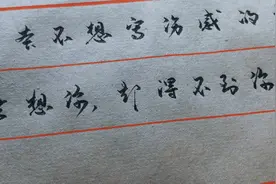 不想写伤感的
想你、却得不到你